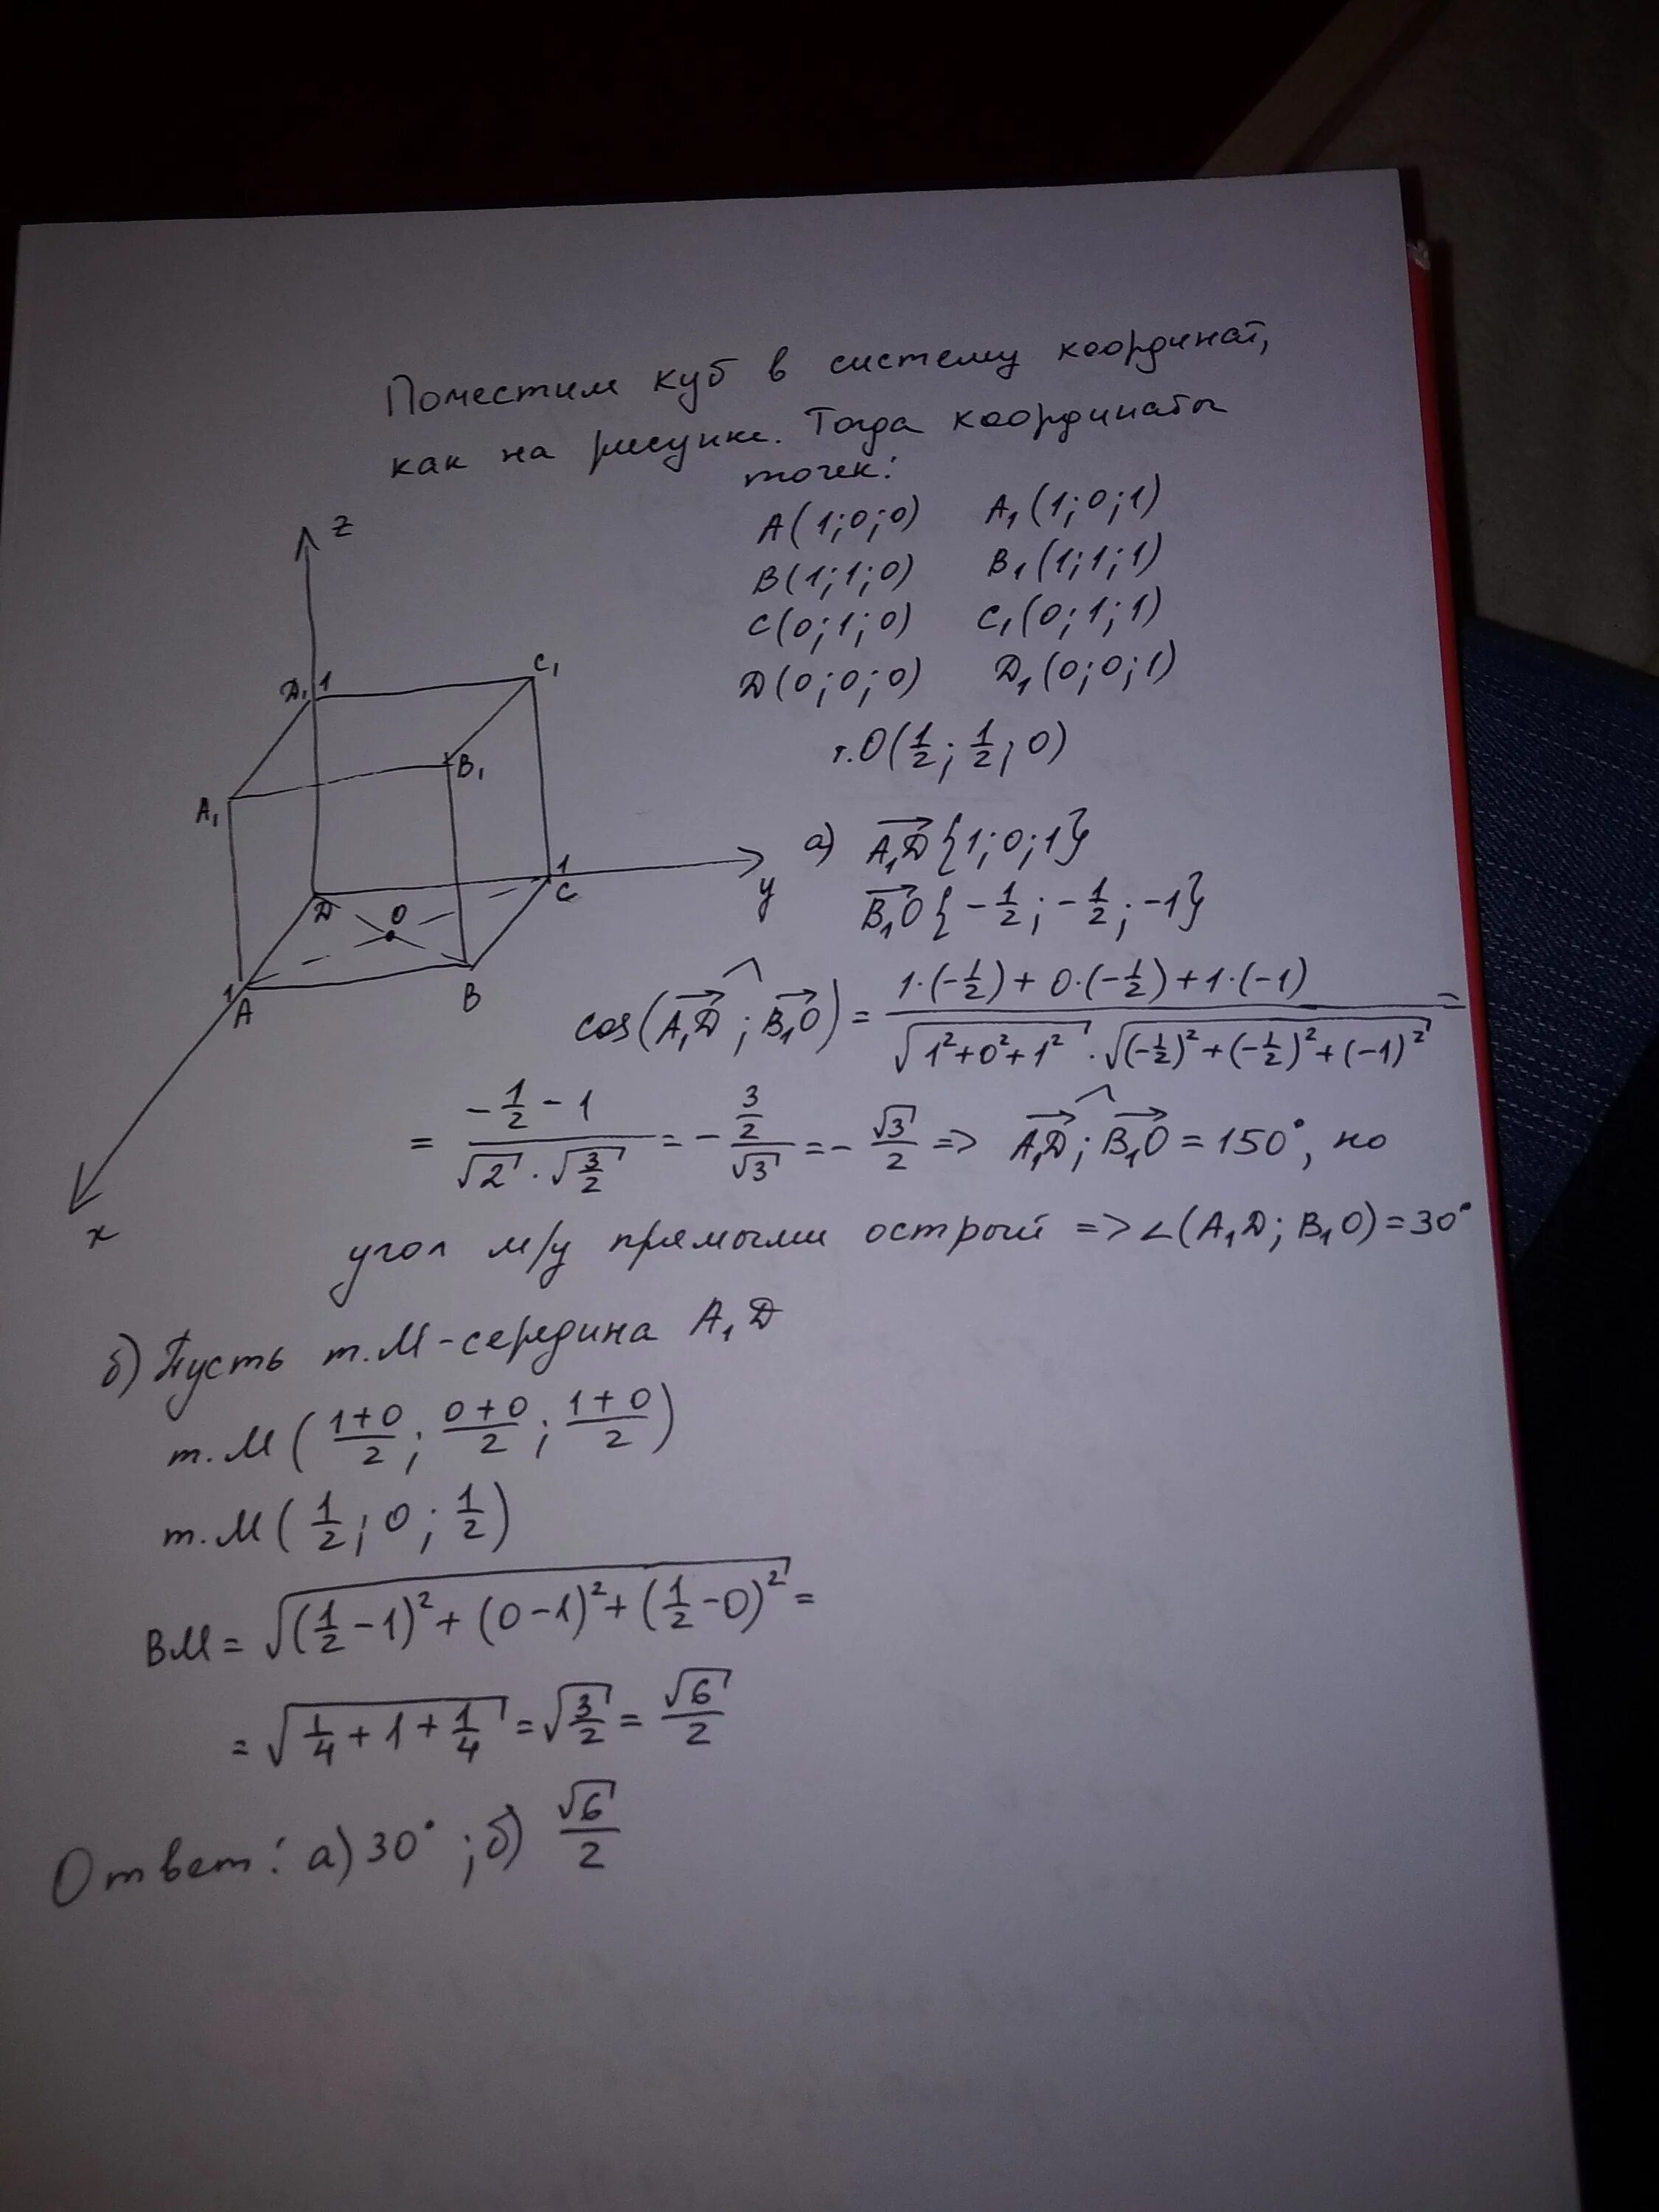 Поместим куб в систему координат,
как на рисунке. Тогда координаты
точек:
A(1;0;0) A₁(1;0;1)
B(1;1;0) B₁(1;1;1)
C(0;1;0) C₁(0;1;1)
D(0;0;0) D₁(0;0;1)
т.O(1/2; 1/2; 0)
z
D₁ 1
C₁
B₁
A₁
1
C
y
D
O
1
A
B
x
а) A₁D{1;0;1}
B₁O{-1/2; -1/2; -1}
cos(A₁D; B₁O) = (1·(-1/2) + 0·(-1/2) + 1·(-1)) / (√(1²+0²+1²) · √((-1/2)²+(-1/2)²+(-1)²)) =
= (-1/2 - 1) / (√2 · √(3/2)) = - (3/2)/√3 = - √3/2 => A₁D; B₁O = 150°, но
угол м/у прямыми острый => ∠(A₁D; B₁O) = 30°
б) Пусть т.M-середина A₁D
т.M((1+0)/2; (0+0)/2; (1+0)/2)
т.M(1/2; 0; 1/2)
BM = √((1/2-1)² + (0-1)² + (1/2-0)²) =
= √(1/4 + 1 + 1/4) = √(3/2) = √6/2
Ответ: а) 30°; б) √6/2